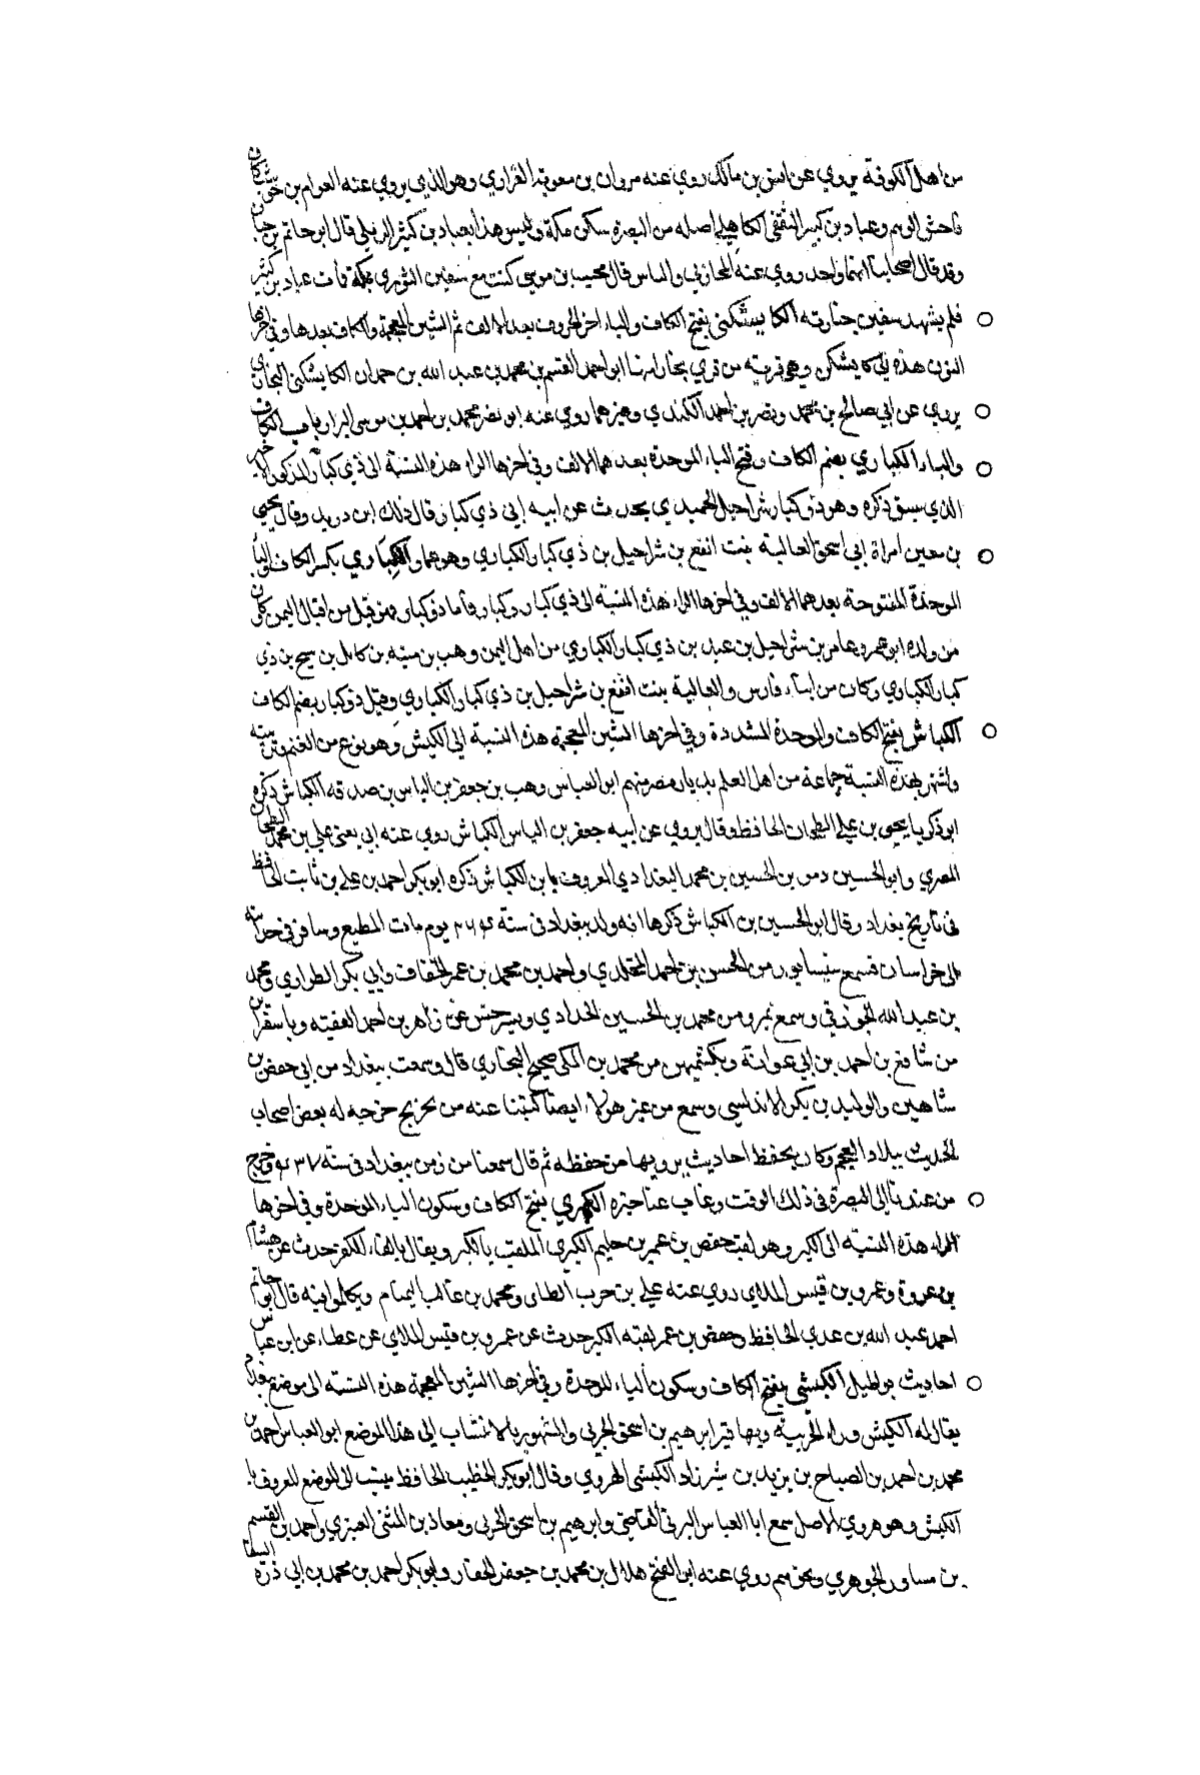 من اهل الكوفة يروي عن انس بن مالك روي عنه مروان بن معوية الفزاري وهو الذي يروي عنه العوام بن حوشب كان
فاحش الوهم وعباد بن كثير الثقفي الكاهلي اصله من البصرة سكن مكة وليس هذا بعباد بن كثير الرملي قال ابو حاتم بن حبان
وقد قال اصحابنا انهما واحد روي عنه المحاربي والناس قال محبب بن موسى كنت مع سفين الثوري بمكة فمات عباد بن كثير
فلم يشهد سفين جنازته الكايشكني بفتح الكاف والياء اخر الحروف بعد الالف ثم الشين المعجمة والكاف بعدها وفي اخرها
النون هذه الى كايشكن وهي قرية من قري بخارا منها ابو احمد القسم بن محمد بن عبد الله بن حمدان الكايشكني البخاري
يروي عن ابي صالح بن محمد ونصر بن احمد الكندي وغيرهما روي عنه ابو نصر محمد بن احمد بن موسى البزار باب الكاف
والباء الكباري بضم الكاف وفتح الباء الموحدة بعدهما الالف وفي اخرها الراء هذه النسبة الى ذي كبار والمذكور
الذي سبق ذكره وهو ذو كبار شراحيل الحميدي يحدث عن ابيه ابي ذي كبار قال ذلك ابن دريد وقال يحيي
بن معين امراة ابي اسحق العالية بنت ايفع بن شراحيل بن ذي كبار الكباري وهو عما والكباري بكسر الكاف والباء
الموحدة المفتوحة بعدهما الالف وفي اخرها الراء هذه النسبة الى ذي كبار وكبار فاما ذو كبار فهو قيل من اقيال اليمن كان
من ولده ابو عمرو عامر بن شراحيل بن عبد بن ذي كبار الكباري من اهل اليمن وهب بن منبه بن كامل بن سيج بن ذي
كبار الكباري وكان من ابناء فارس والعالية بنت ايفع بن شراحيل بن ذي كبار الكباري وقيل ذو كبار بضم الكاف
الكباش بفتح الكاف والموحدة المشددة وفي اخرها الشين المعجمة هذه النسبة الى الكبش وهو نوع من الغنم وتربيته
واشتهر بهذه النسبة جماعة من اهل العلم بديار مصر منهم ابو العباس وهب بن جعفر بن الياس بن صدقه الكباش ذكره
ابو زكريا يحيى بن علي الطحان الحافظ وقال يروي عن ابيه جعفر بن الياس الكباش روي عنه ابي يعني علي بن محمد الطحان
المصري وابو الحسين بن الحسين بن محمد البغدادي المعروف بابن الكباش ذكره ابو بكر احمد بن علي بن ثابت الحافظ
في تاريخ بغداد وقال ابو الحسين بن الكباش ذكر لنا انه ولد ببغداد في سنة يوم مات المطيع وسافر في حداثته
الى خراسان فسمع بنيسابور من الحسن بن احمد المخلدي واحمد بن محمد بن عمر الخفاف وابي بكر الطرازي ومحمد
بن عبد الله الجوزقي وسمع بمرو من محمد بن الحسين الحدادي وبسرخس عن زاهر بن احمد الفقيه وباسفراين
من شافع بن احمد بن ابي عوانة وبكشميهن من محمد بن المكي صحيح البخاري قال وسمعت ببغداد من ابي حفص بن
شاهين والوليد بن بكر الاندلسي وسمع من غير هولاء ايضا كتبنا عنه من تخريج خرجه له بعض اصحاب
الحديث ببلاد العجم وكان يحفظ احاديث يرويها من حفظه ثم قال سمعنا من ببغداد في سنة ٤٣٧ وخرج
من عندنا الى البصرة في ذلك الوقت وغاب عنا خبره الكبري بفتح الكاف وسكون الباء الموحدة وفي اخرها
الراء هذه النسبة الى الكبر وهو لقب حفص بن عمر بن حكيم الكبري الملقب بالكبر ويقال بالفاء الكفر حدث عن هشام
بن عروة وعمرو بن قيس الملائي روي عنه علي بن حرب الطائي ومحمد بن غالب تمتام وتكلموا فيه قال ابو حاتم
احمد عبد الله بن عدي الحافظ وحفص بن عمر لقبه الكبر حدث عن عمرو بن قيس الملائي عن عطاء عن ابن عباس
احاديث بواطيل الكبشي بفتح الكاف وسكون الباء الموحدة وفي اخرها الشين المعجمة هذه النسبة الى موضع ببغداد
يقال له الكبش وراء الحربية وبها قبر ابرهيم بن اسحق الحربي والمشهور بالانتساب الى هذا الموضع ابو العباس احمد بن
محمد بن احمد بن الصباح بن يزيد بن شيرزاد الكبشي الهروي وقال ابو بكر الخطيب الحافظ ينسب الى الموضع المعروف با
الكبش وهو هروي الاصل سمع ابا العباس البرتي القاضي وابرهيم بن اسحق الحربي ومعاذ بن المثنى العنبري واحمد بن القسم
بن مساور الجوهري ونحوهم روي عنه ابو الفتح هلال بن محمد بن جعفر الحفار وابو بكر احمد بن محمد بن ابي ذره